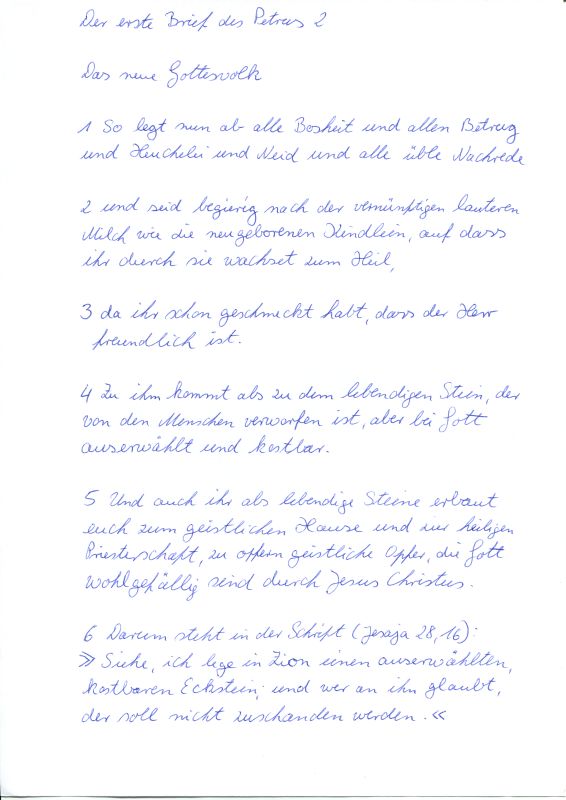 Der erste Brief des Petrus 2
Das neue Gottesvolk
1 So legt nun ab alle Bosheit und allen Betrug
und Heuchelei und Neid und alle üble Nachrede
2 und seid begierig nach der vernünftigen lauteren
Milch wie die neugeborenen Kindlein, auf dass
ihr durch sie wachset zum Heil,
3 da ihr schon geschmeckt habt, dass der Herr
freundlich ist.
4 Zu ihm kommt als zu dem lebendigen Stein, der
von den Menschen verworfen ist, aber bei Gott
auserwählt und kostbar.
5 Und auch ihr als lebendige Steine erbaut
euch zum geistlichen Hause und zur heiligen
Priesterschaft, zu opfern geistliche Opfer, die Gott
wohlgefällig sind durch Jesus Christus.
6 Darum steht in der Schrift (Jesaja 28,16):
»Siehe, ich lege in Zion einen auserwählten,
kostbaren Eckstein; und wer an ihn glaubt,
der soll nicht zuschanden werden.«